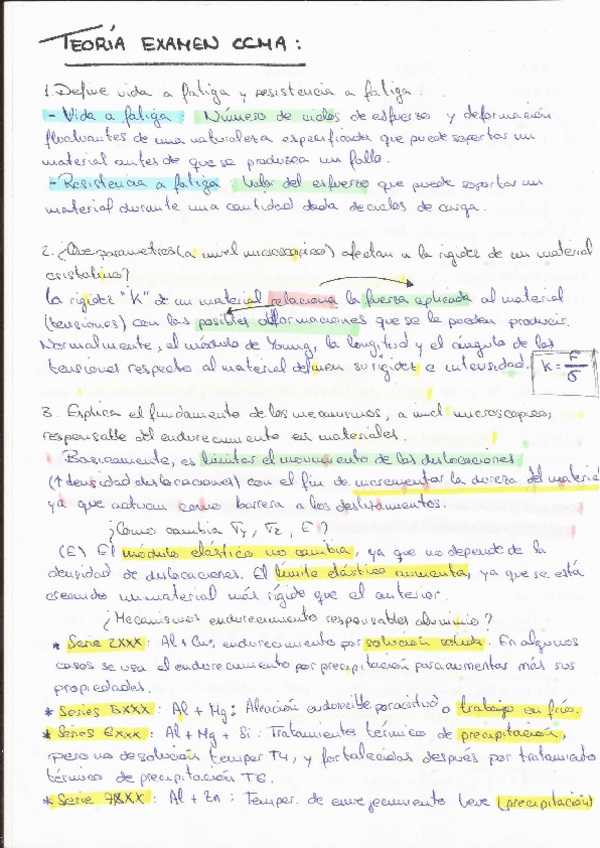 TEORÍA EXAMEN CCMA:
1. Define vida a fatiga y resistencia a fatiga:
- Vida a fatiga: Número de ciclos de esfuerzo y deformación
fluctuantes de una naturaleza especificada que puede soportar un
material antes de que se produzca un fallo.
- Resistencia a fatiga: Valor del esfuerzo que puede soportar un
material durante una cantidad dada de ciclos de carga.
2. ¿Que parametros (a nivel microscopico) afectan a la rigidez de un material
cristalino?
La rigidez "K" de un material relaciona la fuerza aplicada al material
(tensiones) con las posibles deformaciones que se le pueden producir.
Normalmente, el módulo de Young, la longitud y el ángulo de las
tensiones respecto al material definen su rigidez e intensidad.
K = F/δ
3. Explica el fundamento de los mecanismos, a nivel microscopico,
responsable del endurecimiento en materiales.
Basicamente, es limitar el movimiento de las dislocaciones
(↑ densidad dislocaciones) con el fin de incrementar la dureza del material
ya que actuan como barrera a los deslizamientos.
¿Como cambia
E?
(E) El módulo elástico no cambia, ya que no depende de la
densidad de dislocaciones. El límite elástico aumenta, ya que se está
creando un material más rígido que el anterior.
¿Mecanismos endurecimiento responsables aluminio?
* Serie 2XXX: Al + Cu, endurecimiento por solución solida. En algunos
casos se usa el endurecimiento por precipitación para aumentar más sus
propiedades.
* Series 5XXX: Al + Mg: Aleación endurecible por acritud o trabajo en frío.
* Series 6XXX: Al + Mg + Si: Tratamientos térmico de precipitación,
pero no de solución temper T4, y fortalecidas después por tratamiento
térmico de precipitación T6.
* Serie 7XXX: Al + Zn: Temper. de envejecimiento leve (precipitación)